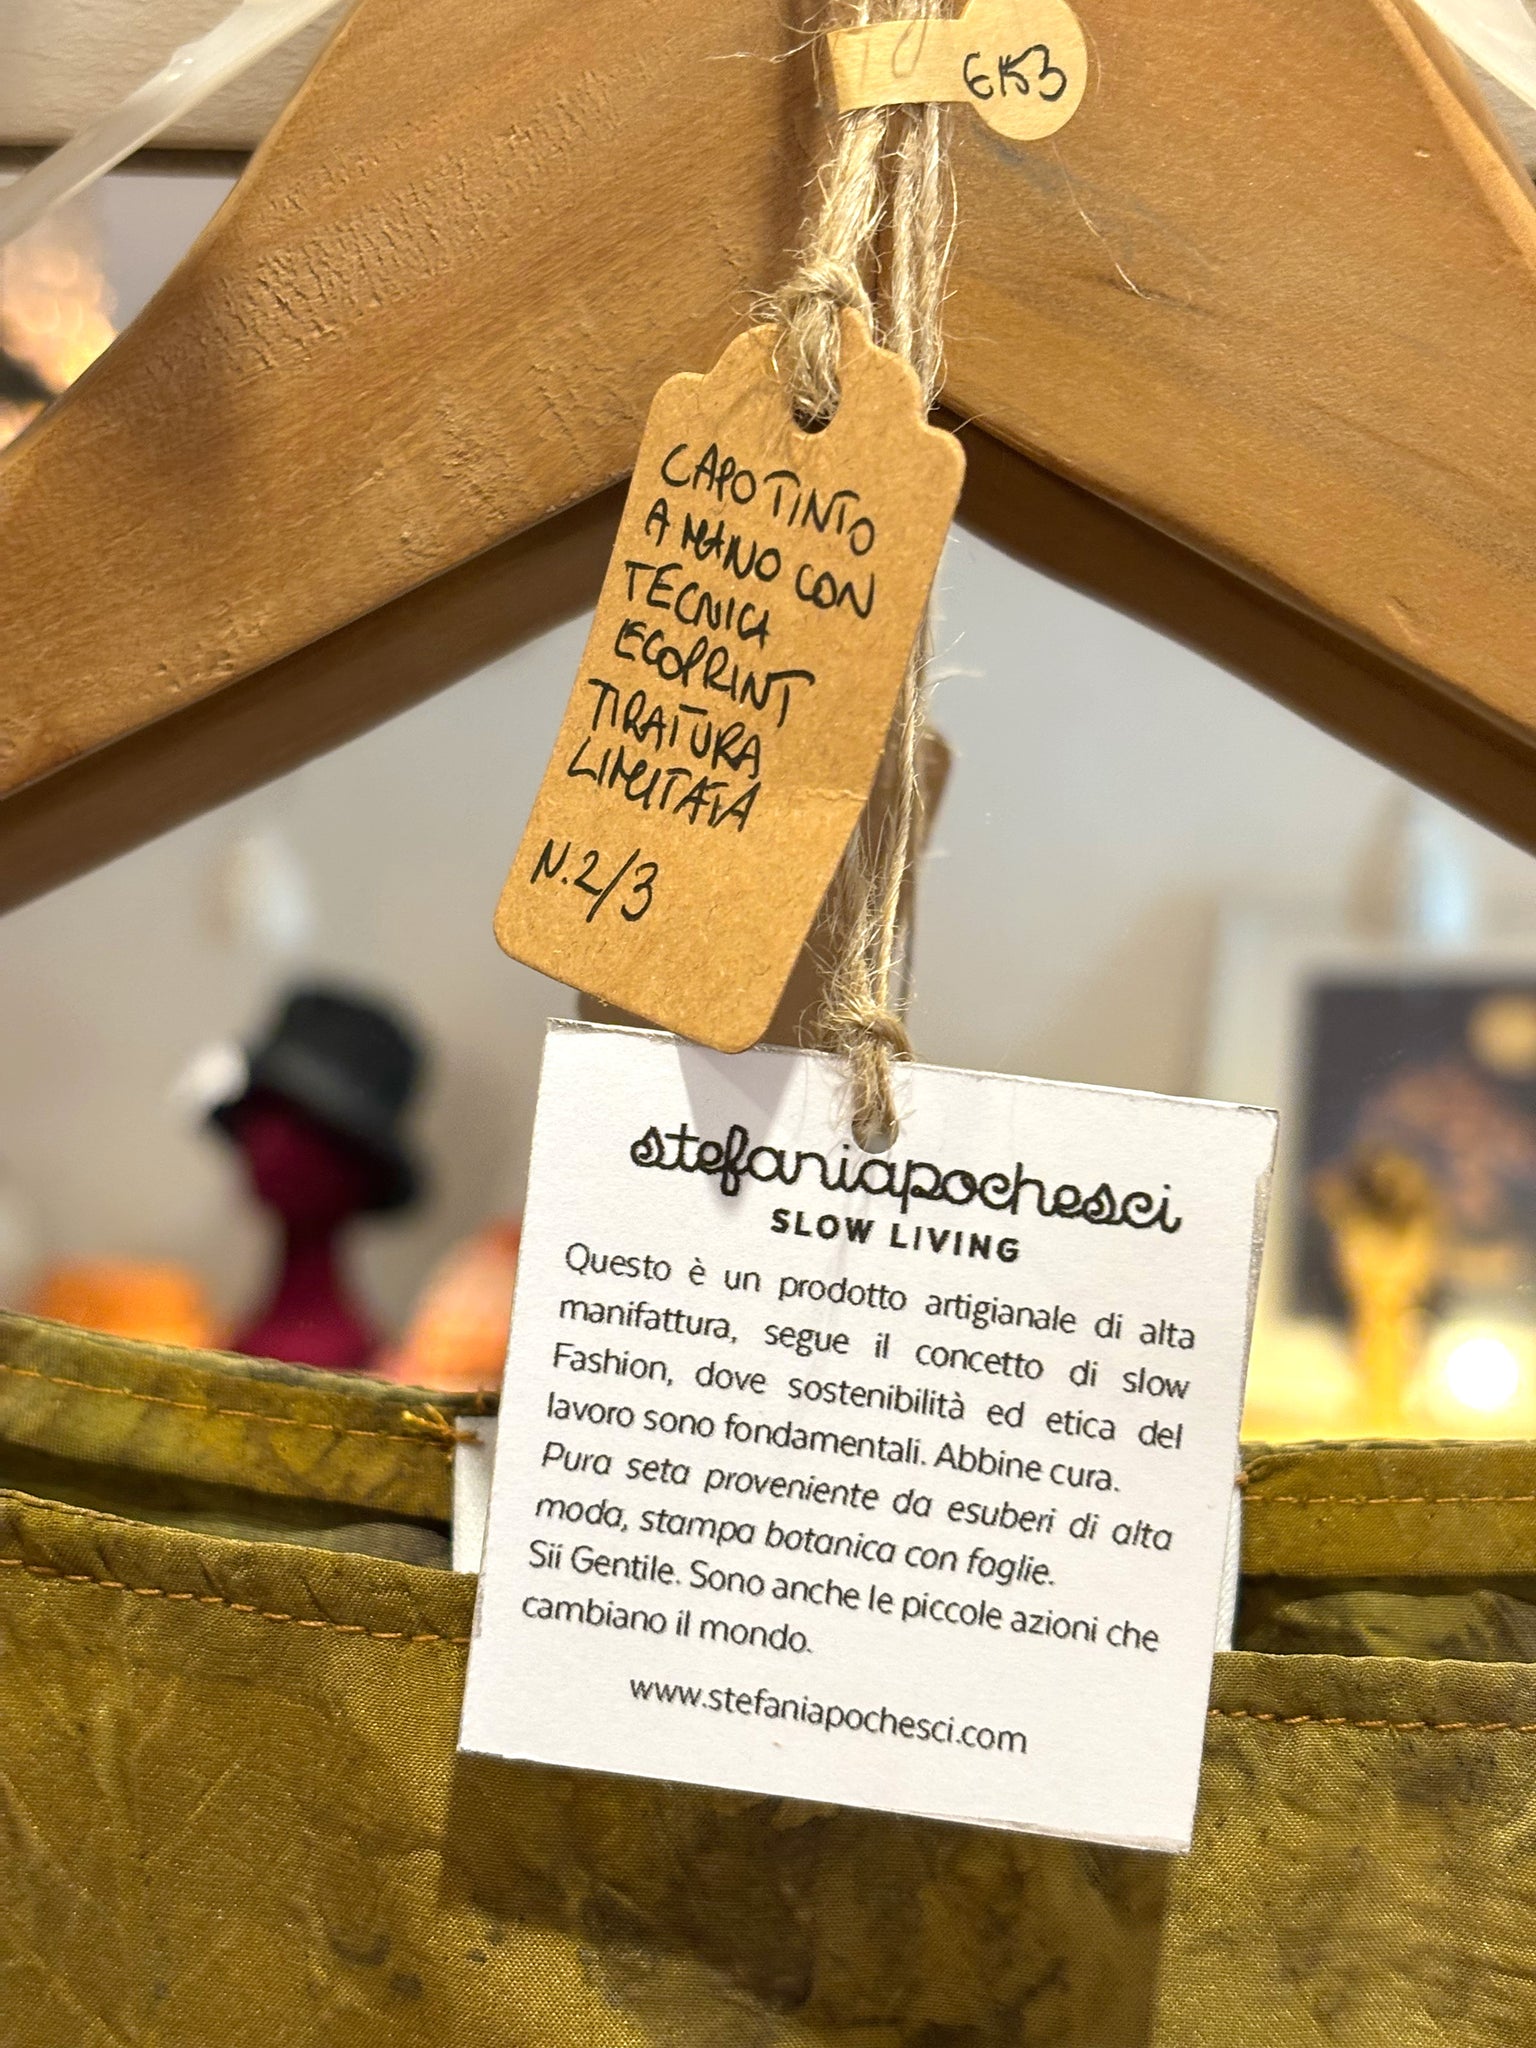 €153
CAPO TINTO
A MANO CON
TECNICA
ECOPRINT
TIRATURA
LIMITATA
N.2/3
stefaniapochesci
SLOW LIVING
Questo è un prodotto artigianale di alta
manifattura, segue il concetto di slow
Fashion, dove sostenibilità ed etica del
lavoro sono fondamentali. Abbine cura.
Pura seta proveniente da esuberi di alta
moda, stampa botanica con foglie.
Sii Gentile. Sono anche le piccole azioni che
cambiano il mondo.
www.stefaniapochesci.com